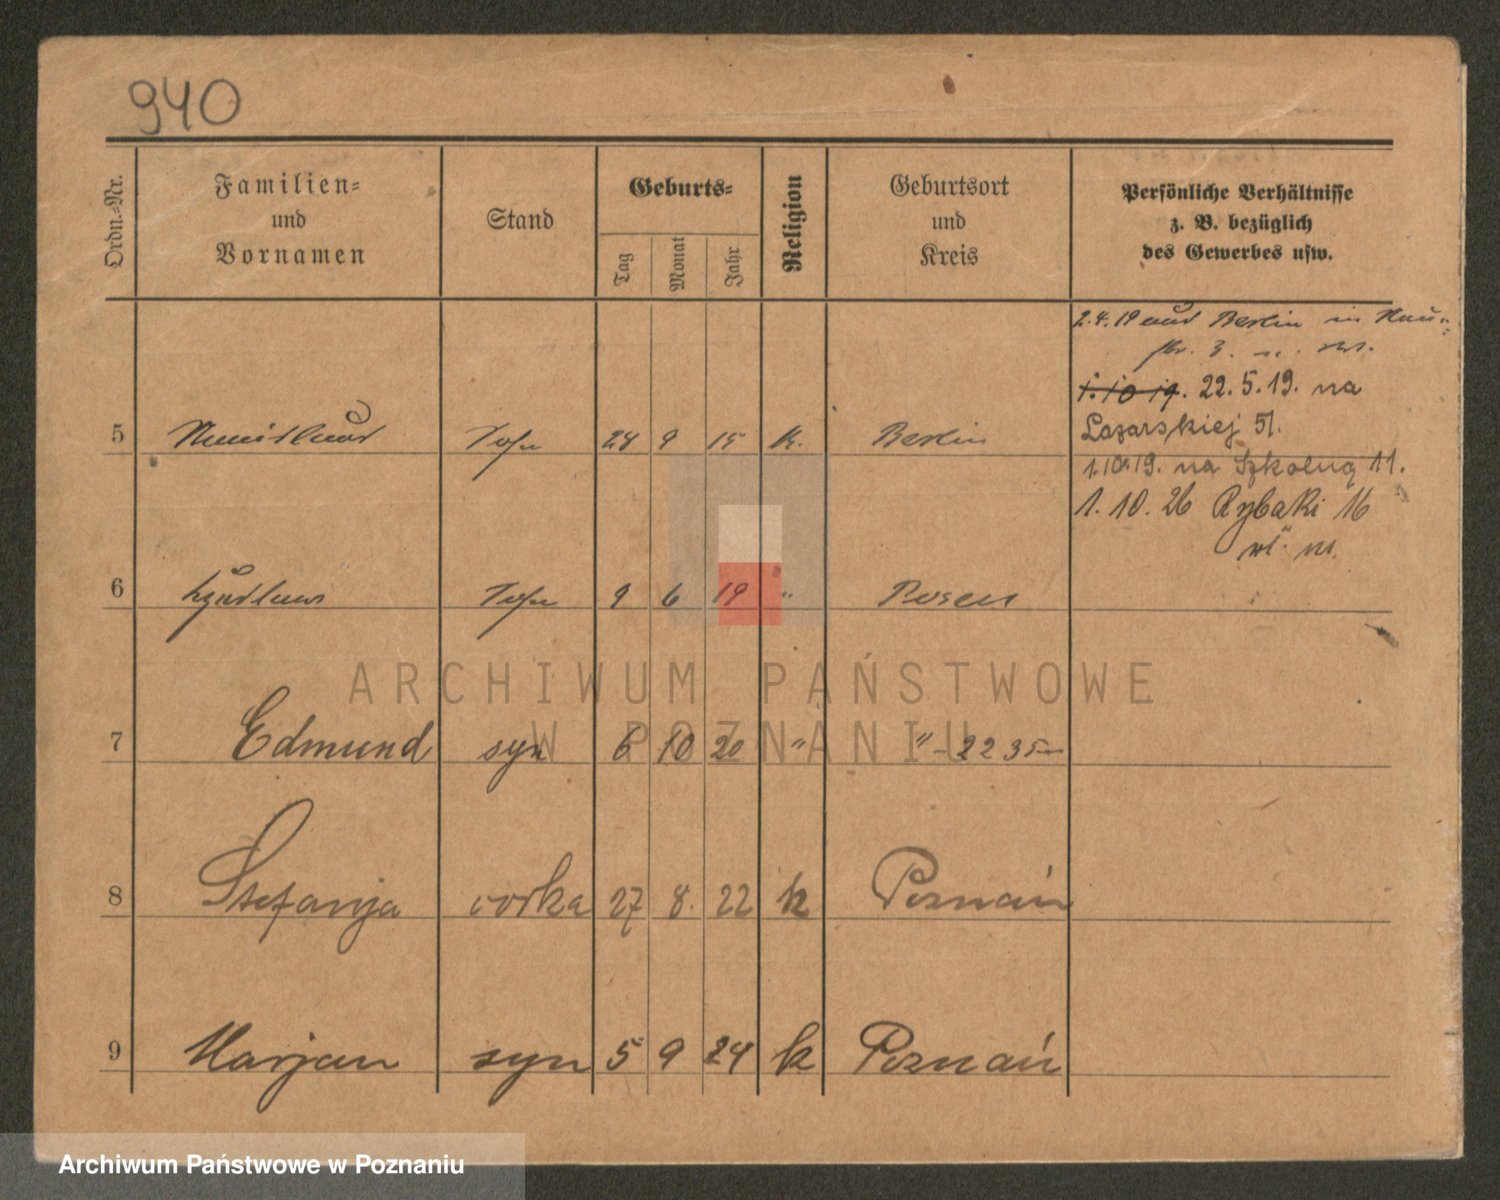 940
Ordn.-Nr.
Familien-
und
Vornamen
Stand
Geburts-
Tag
Monat
Jahr
Religion
Geburtsort
und
Kreis
Persönliche Verhältnisse
z. B. bezüglich
des Gewerbes usw.
2.4.19 aus Berlin in
str. 3.
1.10 19. 22.5.19. na
Łazarskiej 5/.
5 Sohn 24 9 15 k. Berlin
1.10.19. na Szkolną 11.
1. 10. 26 Rybaki 16
wł. m.
6 Sohn 9 6 19 " Posen
7 Edmund syn 6 10 20 " " - 22 35
8 Stefanja córka 27 8. 22 k Poznań
9 Marjan syn 5 9 24 k Poznań
ARCHIWUM PAŃSTWOWE
W POZNANIU
Archiwum Państwowe w Poznaniu